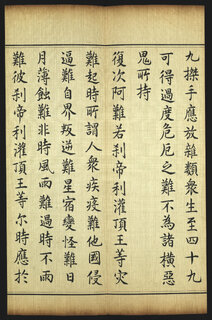 九搩手應放雜類衆生至四十九
可得過度危厄之難不為諸橫惡
鬼所持
復次阿難若刹帝利灌頂王等灾
難起時所謂人衆疾疫難他國侵
逼難自界叛逆難星宿變怪難日
月薄蝕難非時風雨難過時不雨
難彼刹帝利灌頂王等尔時應於